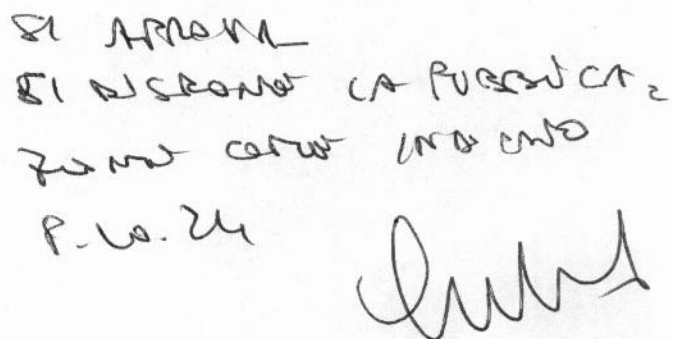 SI APPROVA
SI DISPONE LA PUBBLICA=
ZIONE COME INDICATO
8.10.24